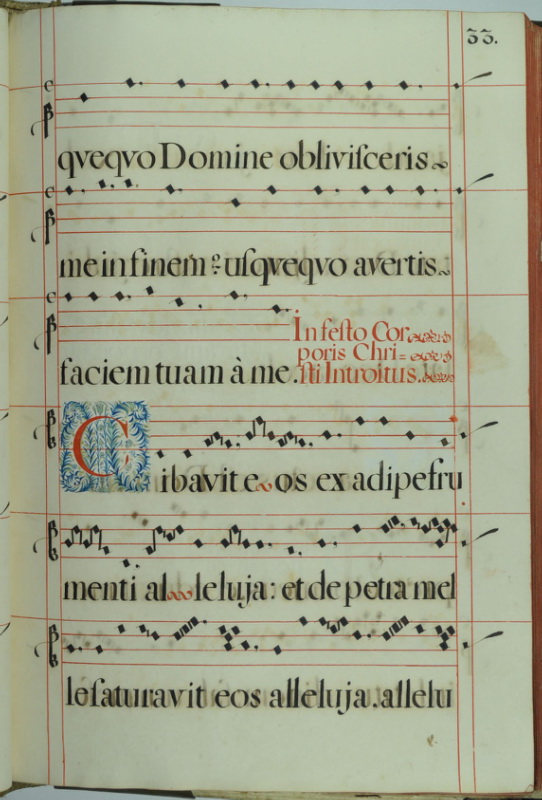 33.
qveqvo Domine obliviſceris
me in finem ?- uſqveqvo avertis
faciem tuam à me.
In feſto Cor
poris Chri=
ſti Introitus.
Cibavit eos ex adipe fru
menti alleluja: et de petra mel
le ſaturavit eos alleluja. allelu